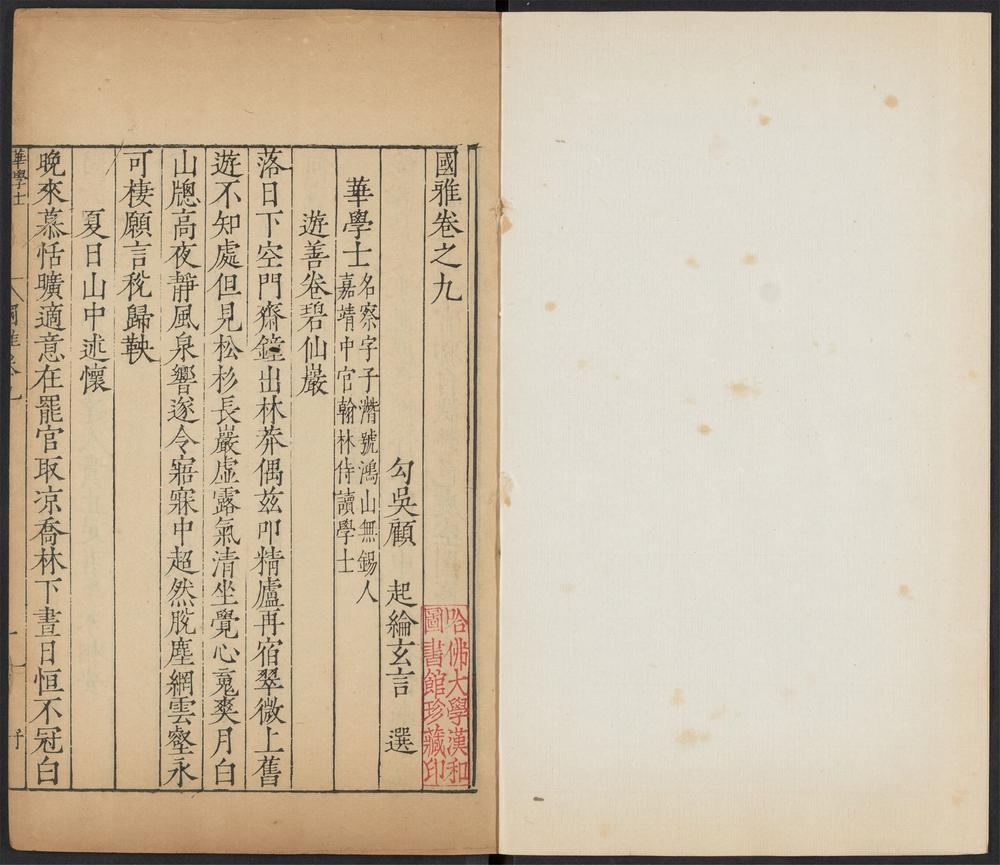 國雅卷之九
勾吳顧 起綸玄言 選
華學士
名察字子潛號鴻山無錫人
嘉靖中官翰林侍讀學士
遊善卷碧仙巖
落日下空門齋鐘出林莽偶茲叩精廬再宿翠微上舊
遊不知處但見松杉長巖虛露氣清坐覺心䰟爽月白
山牕高夜靜風泉響遂令寤寐中超然脫塵網雲壑永
可棲願言稅歸鞅
夏日山中述懷
晚來慕恬曠適意在罷官取凉喬林下晝日恒不冠白
華學士
國雅卷九
一
哈佛大學漢和
圖書館珍藏印